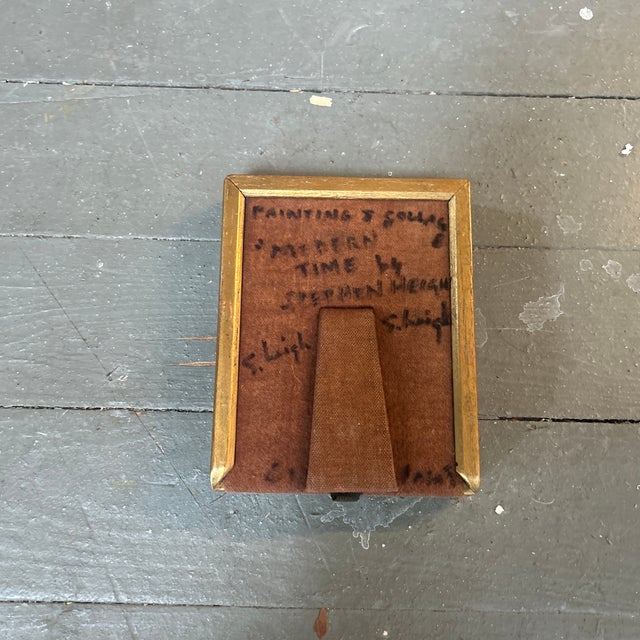 PAINTING & COLLAG
E
"MODERN
TIME by
STEPHEN HEIGH
S. Heigh
S. Heigh